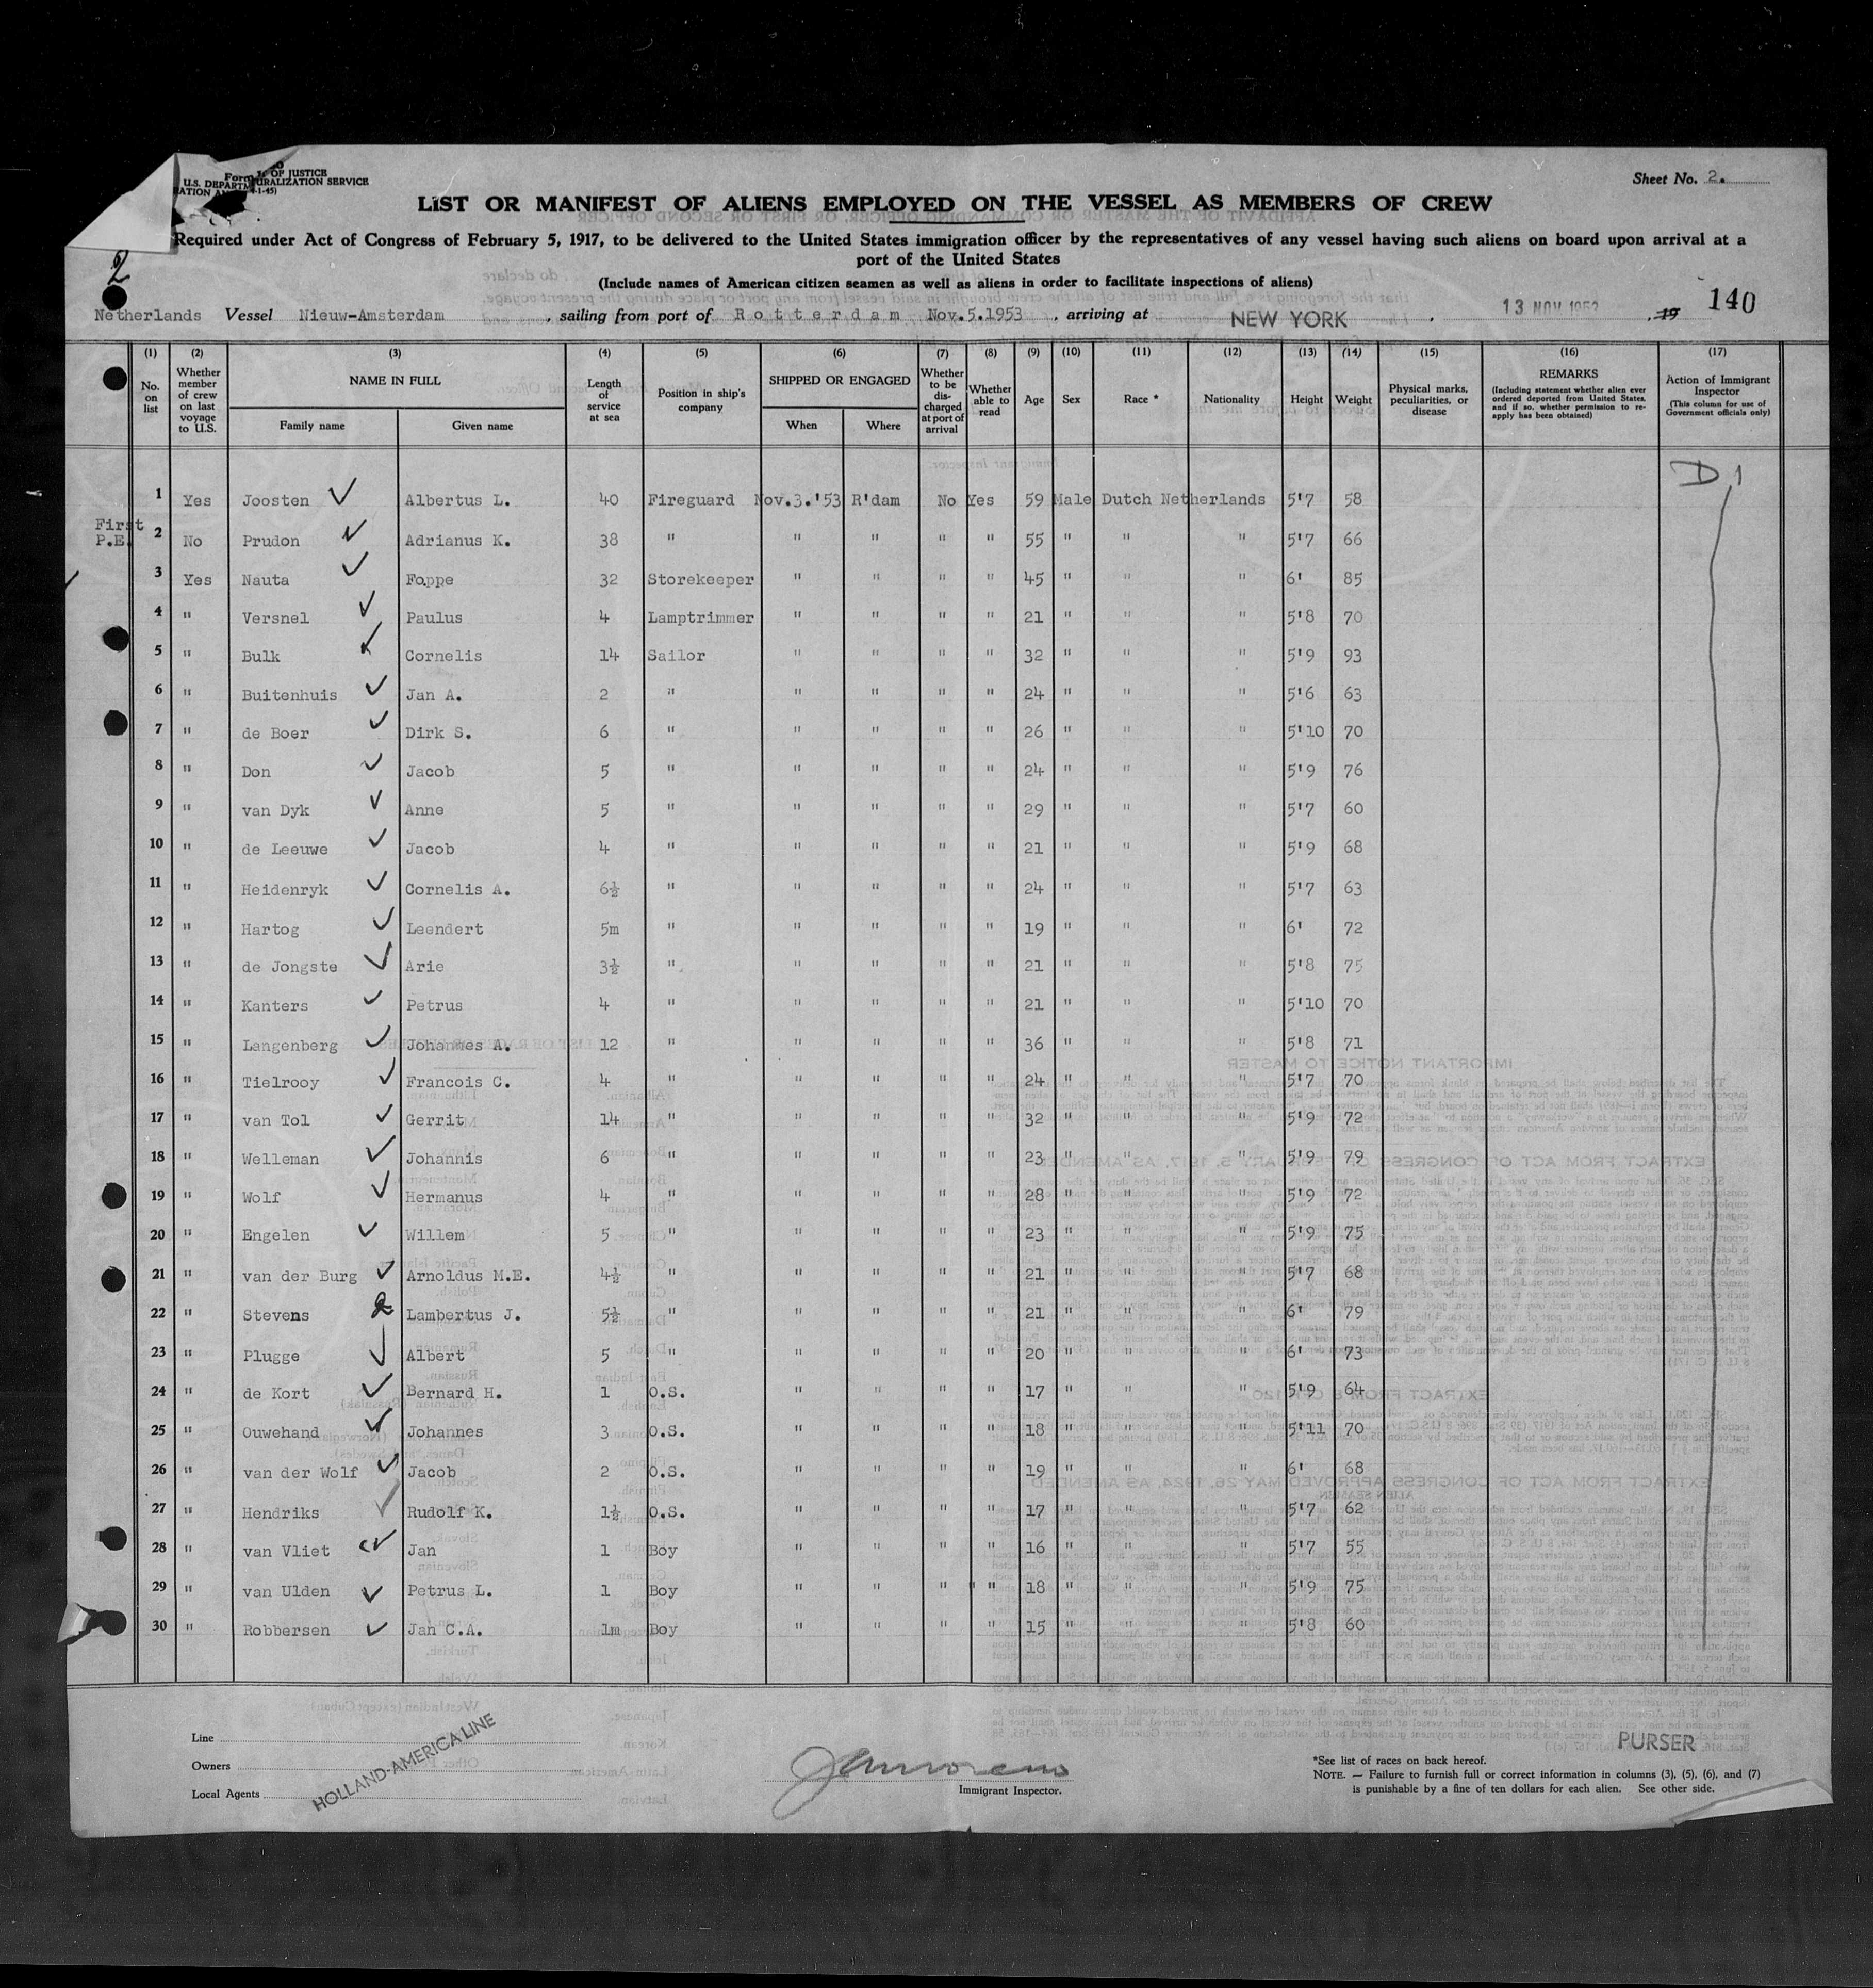 Form I-
U.S. DEPARTM OF JUSTICE
RATION A URALIZATION SERVICE
4-1-45)
Sheet No. 2.
LIST OR MANIFEST OF ALIENS EMPLOYED ON THE VESSEL AS MEMBERS OF CREW
Required under Act of Congress of February 5, 1917, to be delivered to the United States immigration officer by the representatives of any vessel having such aliens on board upon arrival at a
port of the United States
(Include names of American citizen seamen as well as aliens in order to facilitate inspections of aliens)
2
Netherlands Vessel Nieuw-Amsterdam, sailing from port of Rotterdam Nov.5.1953, arriving at NEW YORK, 13 NOV 1953, 19 140
(1) (2) (3) (4) (5) (6) (7) (8) (9) (10) (11) (12) (13) (14) (15) (16) (17)
No. on list
Whether member of crew on last voyage to U.S.
NAME IN FULL
Family name Given name
Length of service at sea
Position in ship's company
SHIPPED OR ENGAGED
When Where
Whether to be discharged at port of arrival
Whether able to read
Age Sex Race * Nationality Height Weight
Physical marks, peculiarities, or disease
REMARKS
(Including statement whether alien ever ordered deported from United States, and if so, whether permission to re-apply has been obtained)
Action of Immigrant Inspector
(This column for use of Government officials only)
D 1
1 Yes Joosten Albertus L. 40 Fireguard Nov.3.'53 R'dam No Yes 59 Male Dutch Netherlands 5'7 58
First P.E. 2 No Prudon Adrianus K. 38 " " " " " 55 " " " 5'7 66
3 Yes Nauta Foppe 32 Storekeeper " " " " 45 " " " 6' 85
4 " Versnel Paulus 4 Lamptrimmer " " " " 21 " " " 5'8 70
5 " Bulk Cornelis 14 Sailor " " " " 32 " " " 5'9 93
6 " Buitenhuis Jan A. 2 " " " " " 24 " " " 5'6 63
7 " de Boer Dirk S. 6 " " " " " 26 " " " 5'10 70
8 " Don Jacob 5 " " " " " 24 " " " 5'9 76
9 " van Dyk Anne 5 " " " " " 29 " " " 5'7 60
10 " de Leeuwe Jacob 4 " " " " " 21 " " " 5'9 68
11 " Heidenryk Cornelis A. 6½ " " " " " 24 " " " 5'7 63
12 " Hartog Leendert 5m " " " " " 19 " " " 6' 72
13 " de Jongste Arie 3½ " " " " " 21 " " " 5'8 75
14 " Kanters Petrus 4 " " " " " 21 " " " 5'10 70
15 " Langenberg Johannes A. 12 " " " " " 36 " " " 5'8 71
16 " Tielrooy Francois C. 4 " " " " " 24 " " " 5'7 70
17 " van Tol Gerrit 14 " " " " " 32 " " " 5'9 72
18 " Welleman Johannis 6 " " " " " 23 " " " 5'9 79
19 " Wolf Hermanus 4 " " " " " 28 " " " 5'9 72
20 " Engelen Willem 5 " " " " " 23 " " " 5'9 75
21 " van der Burg Arnoldus M.E. 4½ " " " " " 21 " " " 5'7 68
22 " Stevens Lambertus J. 5½ " " " " " 21 " " " 6' 79
23 " Plugge Albert 5 " " " " " 20 " " " 6' 73
24 " de Kort Bernard H. 1 O.S. " " " " 17 " " " 5'9 64
25 " Ouwehand Johannes 3 O.S. " " " " 18 " " " 5'11 70
26 " van der Wolf Jacob 2 O.S. " " " " 19 " " " 6' 68
27 " Hendriks Rudolf K. 1½ O.S. " " " " 17 " " " 5'7 62
28 " van Vliet Jan 1 Boy " " " " 16 " " " 5'7 55
29 " van Ulden Petrus L. 1 Boy " " " " " 18 " " " 5'9 75
30 " Robbersen Jan C.A. 1m Boy " " " " 15 " " " 5'8 60
Line
Owners
Local Agents
HOLLAND-AMERICA LINE
Immigrant Inspector.
PURSER
*See list of races on back hereof.
NOTE. — Failure to furnish full or correct information in columns (3), (5), (6), and (7)
is punishable by a fine of ten dollars for each alien. See other side.